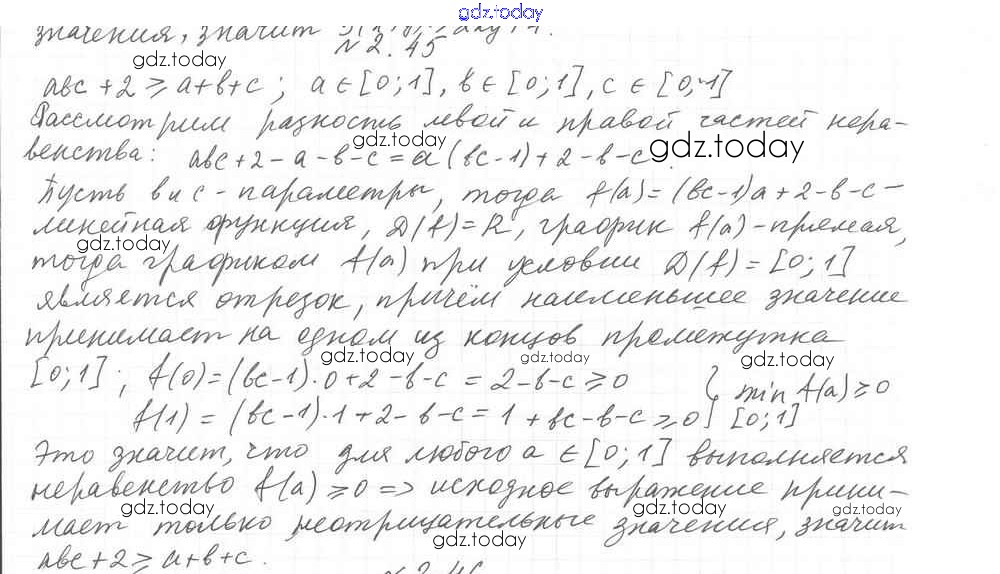 gdz.today
значения, значит
gdz.today
N 2.45
abc + 2 ⩾ a+b+c ; a ∈ [0;1], b ∈ [0;1], c ∈ [0;1]
Рассмотрим разность левой и правой частей нера-
gdz.today
венства: abc + 2 - a - b - c = a (bc - 1) + 2 - b - c gdz.today
Пусть b и c - параметры, тогда f(a) = (bc-1)a + 2 - b - c -
линейная функция, D(f) = R, график f(a) - прямая,
gdz.today
тогда графиком f(a) при условии D(f) = [0;1]
является отрезок, причём наименьшее значение
принимает на одном из концов промежутка
gdz.today gdz.today gdz.today
[0;1]; f(0) = (bc-1)·0 + 2 - b - c = 2 - b - c ⩾ 0 } min f(a) ⩾ 0
f(1) = (bc-1)·1 + 2 - b - c = 1 + bc - b - c ⩾ 0 [0;1]
gdz.today
Это значит, что для любого a ∈ [0;1] выполняется
неравенство f(a) ⩾ 0 => исходное выражение прини-
gdz.today gdz.today gdz.today
мает только неотрицательные значения, значит
gdz.today
abc + 2 ⩾ a + b + c.